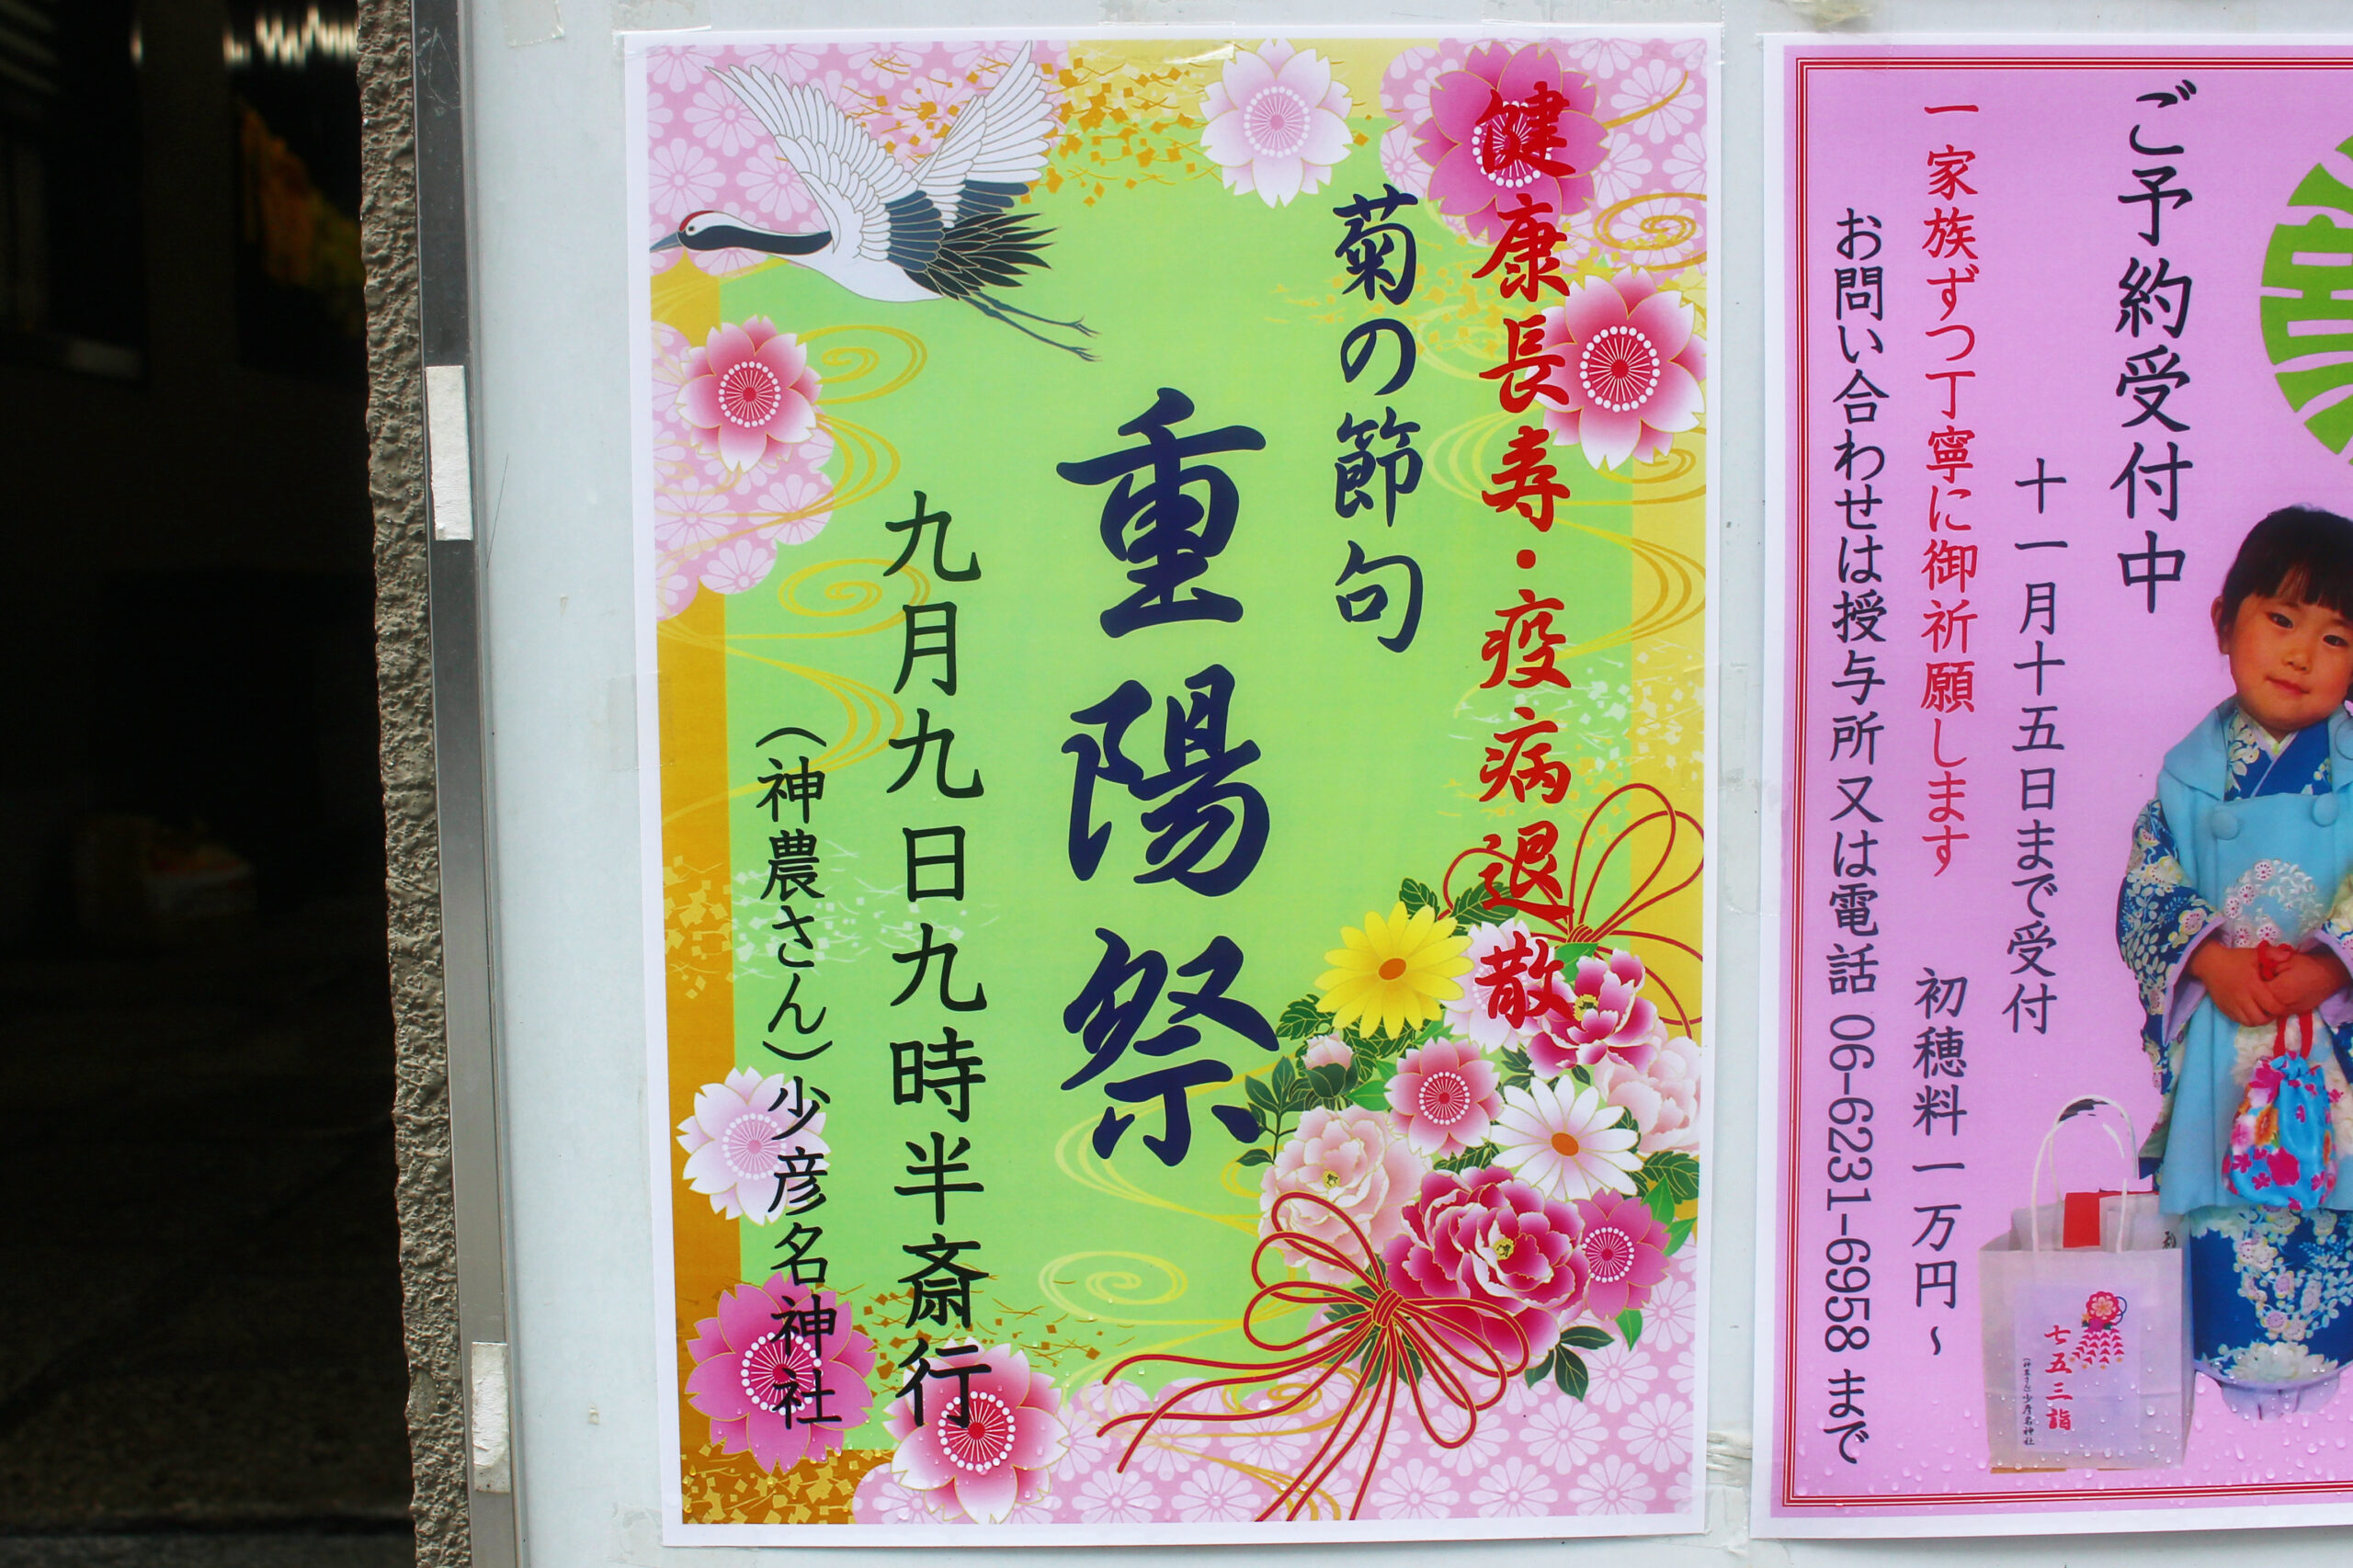 健康長寿・疫病退散
菊の節句
重陽祭
九月九日九時半斎行
（神農さん）少彦名神社
ご予約受付中
十一月十五日まで受付
一家族ずつ丁寧に御祈願します 初穂料一万円~
お問い合わせは授与所又は電話 06-6231-6958 まで
七五三詣
（神農さん）少彦名神社